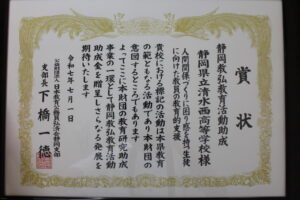 賞状
静岡教弘教育活動助成
静岡県立清水西高等学校様
人間関係づくりに困り感を持つ生徒
に向けた教員の教育的支援
貴校における標記の活動は本県教育
の範ともなる活動であり本財団の
意図するところでもあります
よってここに本財団の教育研究助成
事業の一環として静岡教弘教育活動
助成金を贈呈しさらなる発展を
期待いたします
令和七年七月一日
公益財団法人日本教育公務員弘済会静岡支部
支部長 下橋一徳